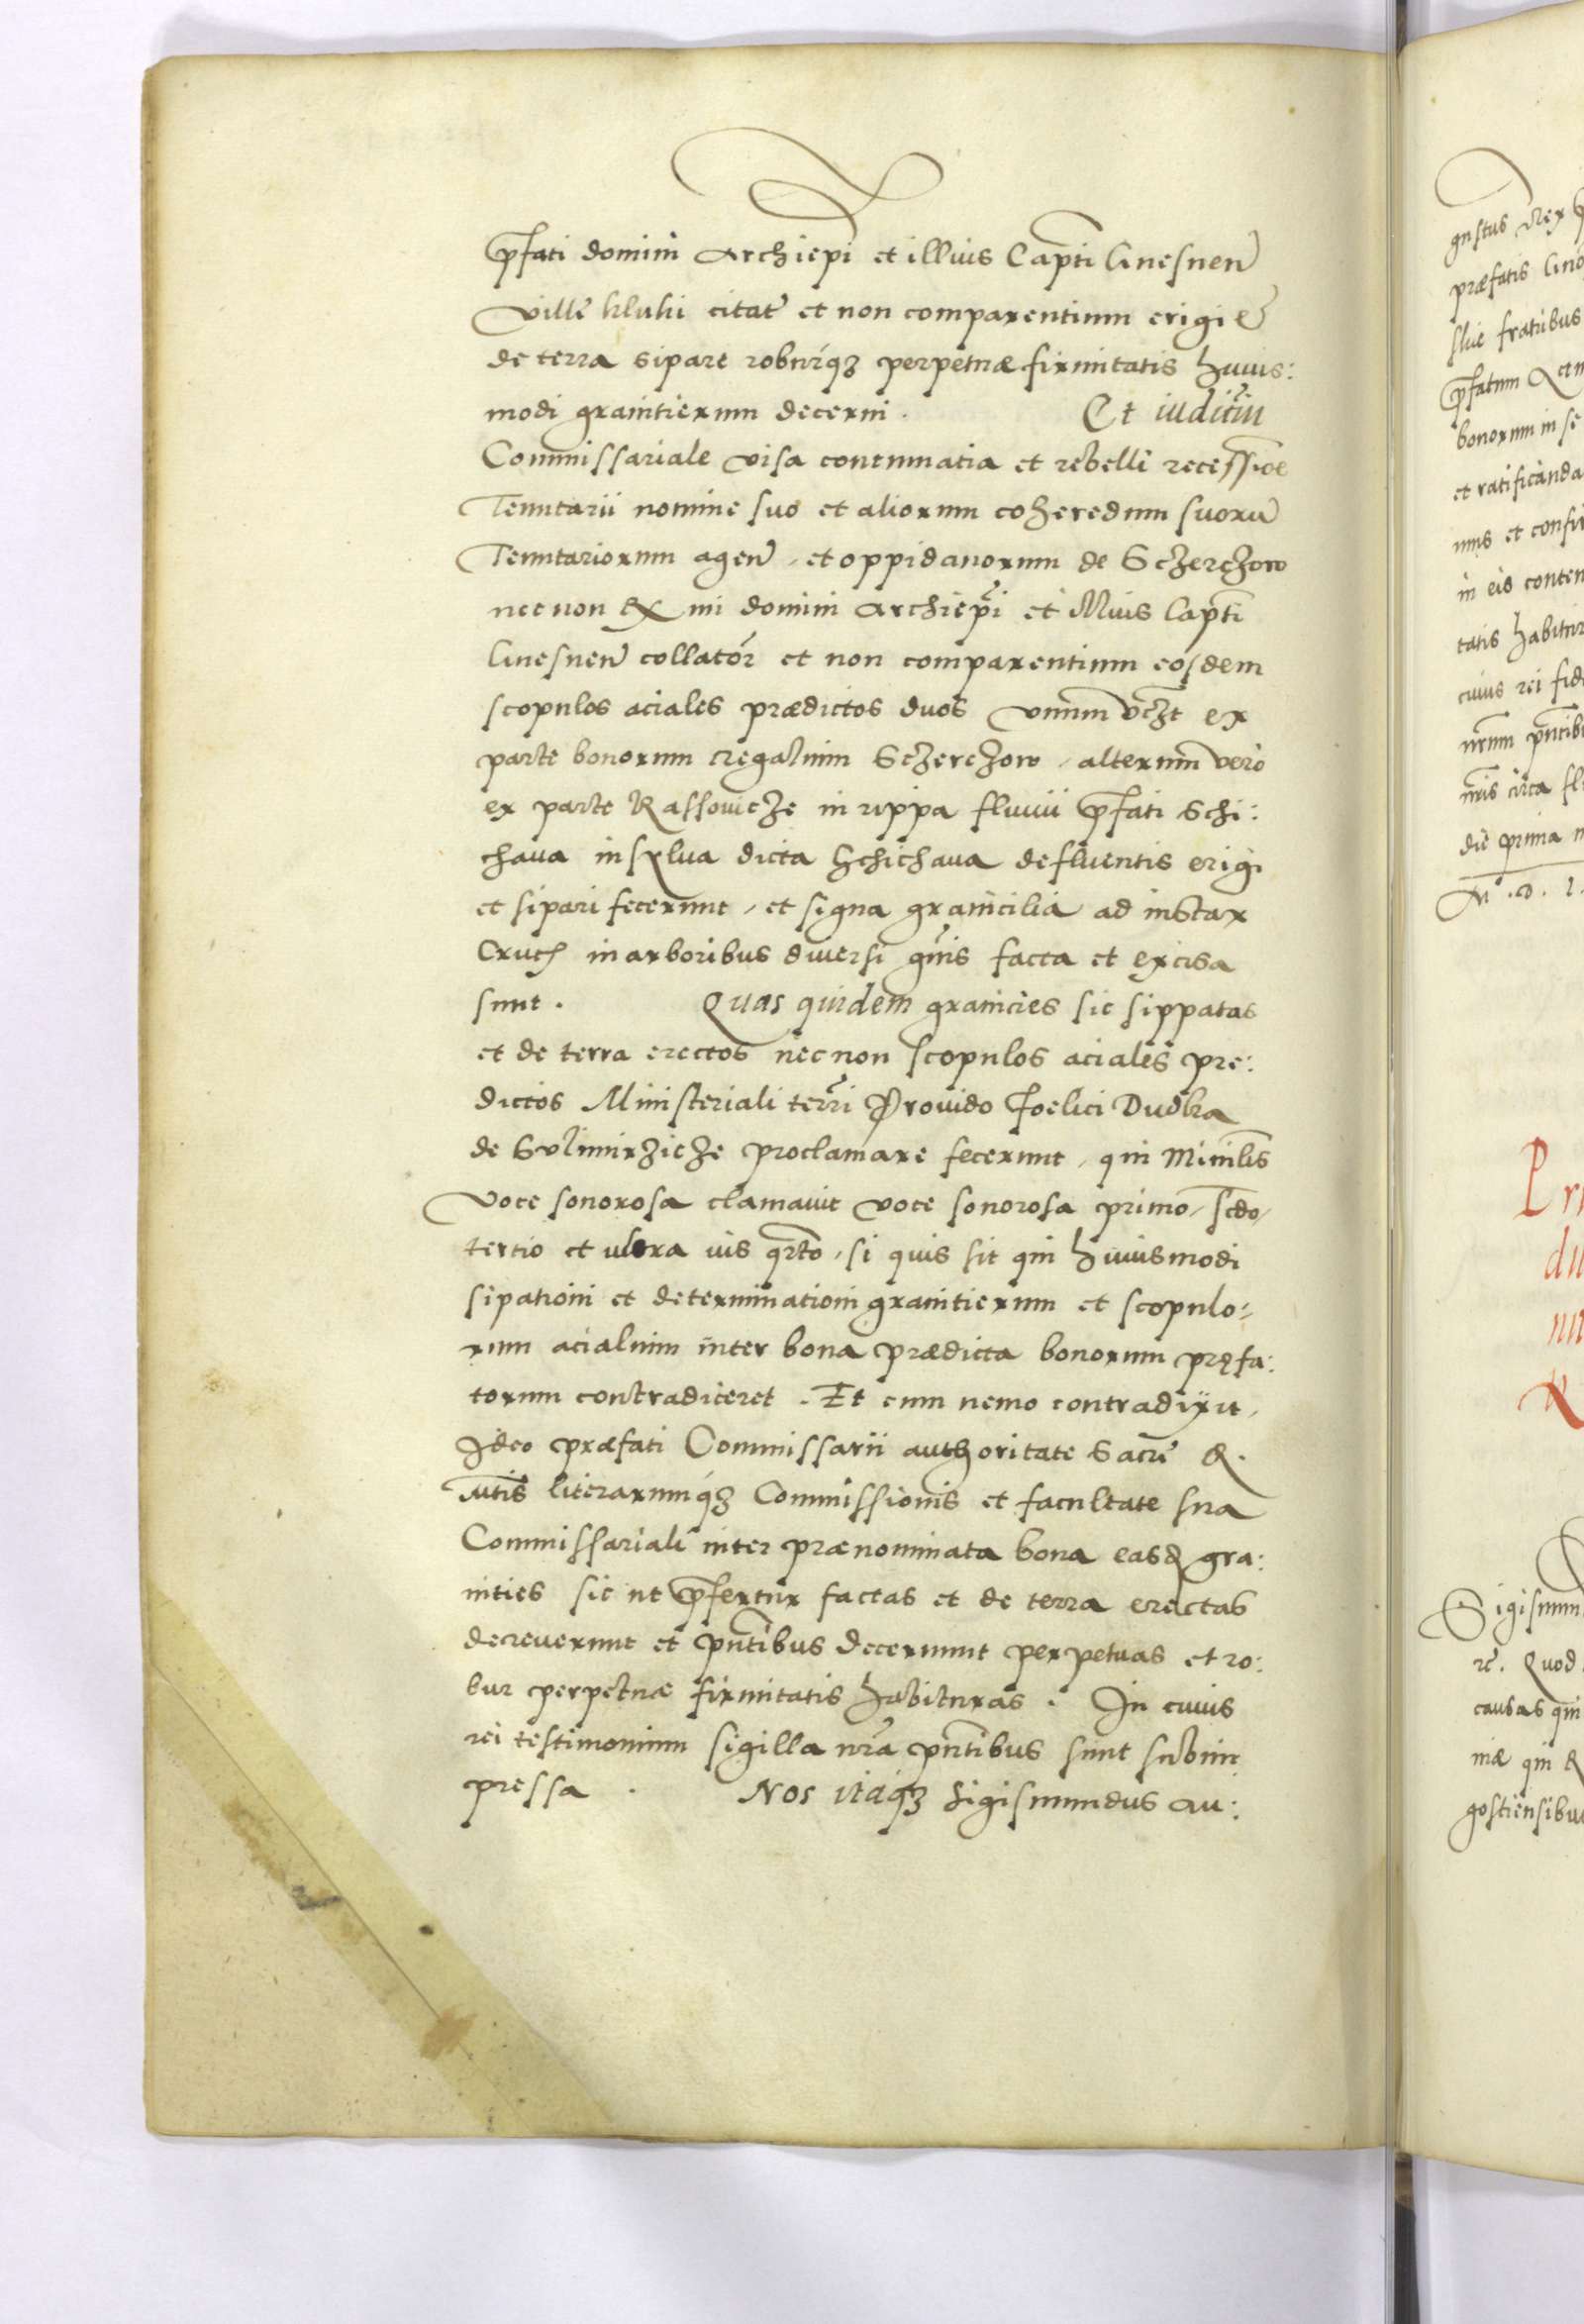 pfati domini Archiepi et illius Capti Gnesnen
ville kluki citat et non comparentium erigi et
de terra sipare roburq perpetuæ firmitatis huius:
modi granitierum decerni. Et iuditiu
Commissariale visa contumatia et rebelli recessioe
Tenutarii nomine suo et aliorum coheredum suoru
Tenutariorum agen, et oppidanorum de Sczerczow
nec non Rx mi domini Archiepi et illius Capti
Gnesnen collator et non comparentium eosdem
scopulos aciales prædictos duos vnum vczt ex
parte bonorum regalium Sczerczow, alterum vero
ex parte Rassowicze in rippa fluuii pfati Schi:
chava in sylva dicta Schichava defluentis erigi
et sipari fecerunt, et signa granicilia ad instar
Cruc in arboribus diuersi gnis facta et excisa
sunt. Quas quidem granicies sic sippatas
et de terra erectos nec non scopulos aciales pre:
dictos Ministeriali terri Prouido Foelici Dudka
de Sulimirzicze proclamare fecerunt, qui Minilis
voce sonorosa clamauit voce sonorosa primo, scdo,
tertio et ultra uis qrto, si quis sit qui huiusmodi
sipationi et determinationi granitierum et scopulo:
rum acialium inter bona prædicta bonorum pręfa:
torum contradiceret. Et cum nemo contradixit,
Ideo præfati Commissarii authoritate Sacre R.
Mtis literarumq Commissionis et facultate sua
Commissariali inter prænominata bona easd gra:
nities sic ut pfertur factas et de terra erectas
decreuerunt et pntibus decernunt perpetuas et ro:
bur perpetuæ firmitatis habituras. In cuius
rei testimonium sigilla nra pntibus sunt subim
pressa. Nos itaq Sigismundus au:
gustus Rex
præfatis
fratribus
pfatum
bonorum in se
et ratificanda
mus et confir
in eis conten
tatis habitur
cuius rei fid
nrum pntib
nris circa fl
die prima
M. D. L.
Sigismun
re. Quod
causas qui
niæ qui
gostiensibu